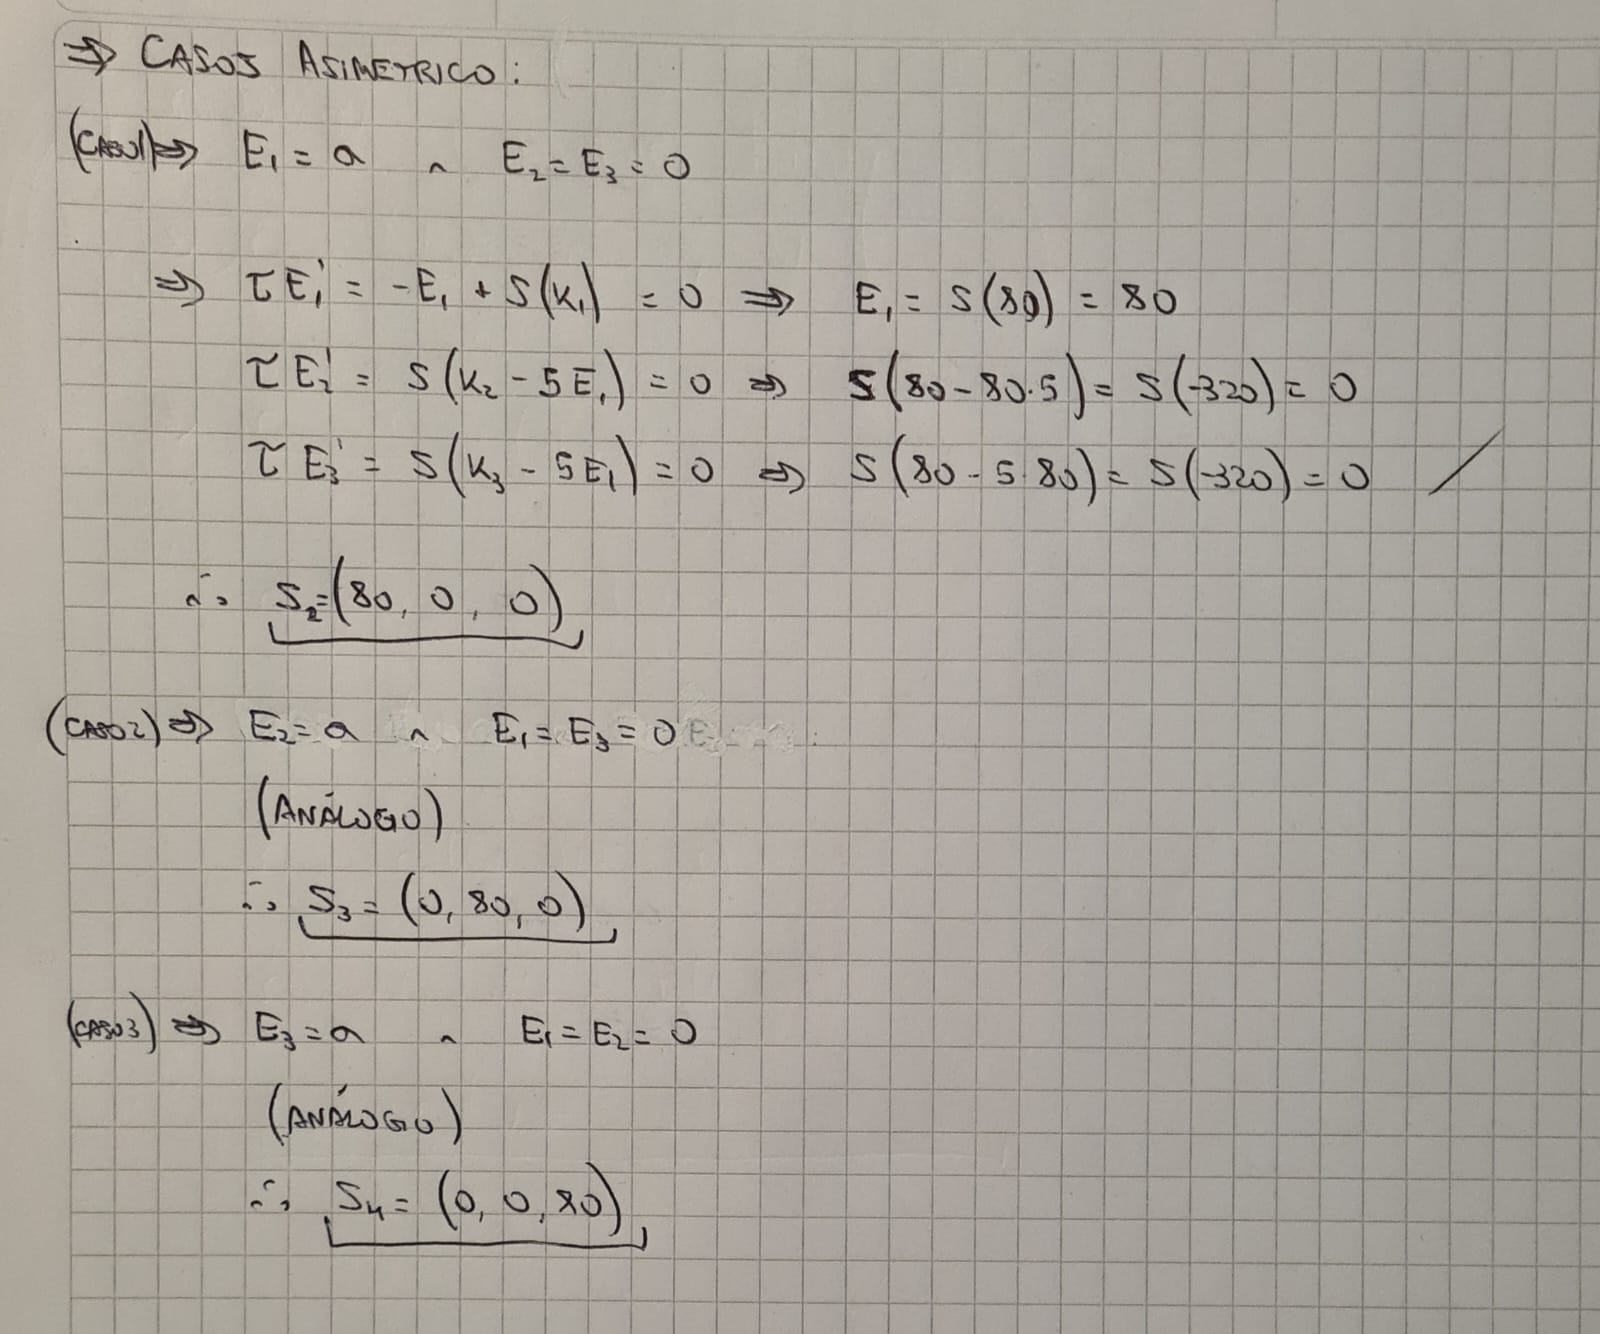 ⇒ CASOS ASIMETRICO:
(CASO1) ⇒ E₁ = a ∧ E₂ = E₃ = 0
⇒ τE₁' = -E₁ + S(K₁) = 0 ⇒ E₁ = S(80) = 80
τE₂' = S(K₂ - 5E₁) = 0 ⇒ S(80 - 80·5) = S(-320) = 0
τE₃' = S(K₃ - 5E₁) = 0 ⇒ S(80 - 5·80) = S(-320) = 0 /
∴ S₂ = (80, 0, 0)
(CASO2) ⇒ E₂ = a ∧ E₁ = E₃ = 0
(ANÁLOGO)
∴ S₃ = (0, 80, 0)
(CASO3) ⇒ E₃ = a ∧ E₁ = E₂ = 0
(ANÁLOGO)
∴ S₄ = (0, 0, 80)